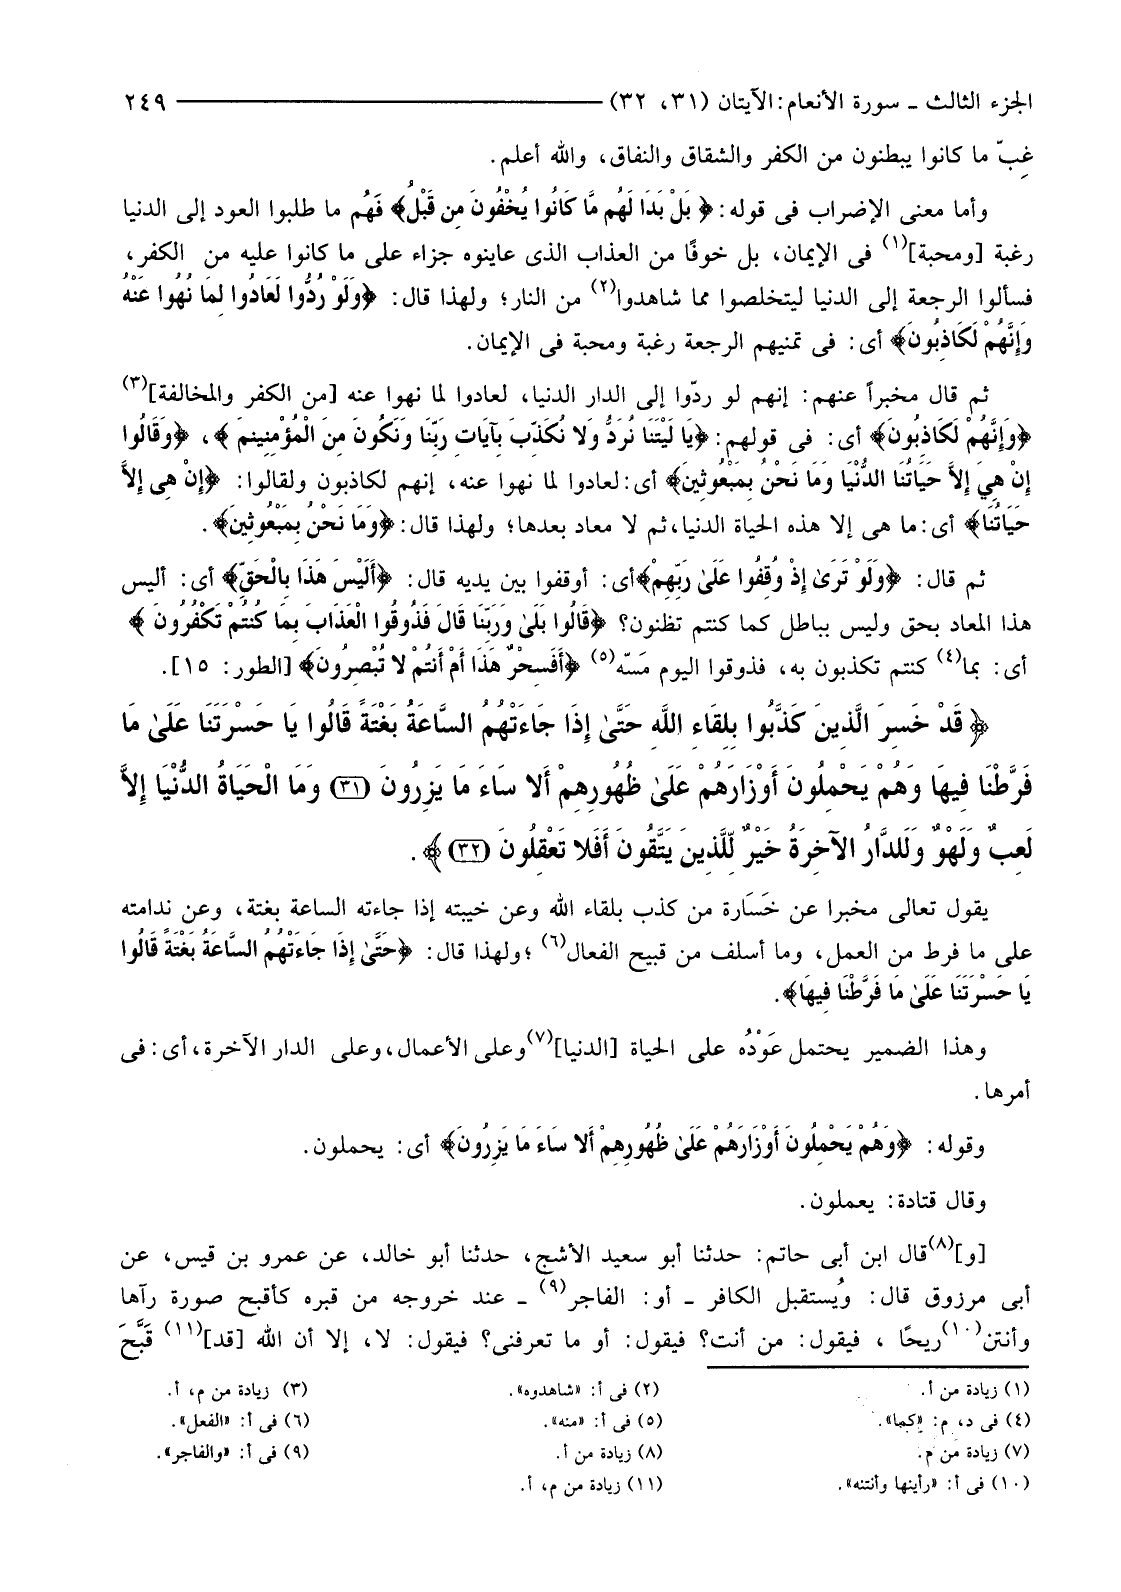 الجزء الثالث ـ سورة الأنعام: الآيتان (٣١، ٣٢) ٢٤٩
غِبّ ما كانوا يبطنون من الكفر والشقاق والنفاق، والله أعلم.
وأما معنى الإضراب فى قوله: ﴿ بَلْ بَدَا لَهُم مَّا كَانُوا يُخْفُونَ مِن قَبْلُ﴾ فَهُم ما طلبوا العود إلى الدنيا
رغبة [ومحبة](١) فى الإيمان، بل خوفًا من العذاب الذى عاينوه جزاء على ما كانوا عليه من الكفر،
فسألوا الرجعة إلى الدنيا ليتخلصوا مما شاهدوا(٢) من النار؛ ولهذا قال: ﴿وَلَوْ رُدُّوا لَعَادُوا لِمَا نُهُوا عَنْهُ
وَإِنَّهُمْ لَكَاذِبُونَ﴾ أى: فى تمنيهم الرجعة رغبة ومحبة فى الإيمان.
ثم قال مخبراً عنهم: إنهم لو ردّوا إلى الدار الدنيا، لعادوا لما نهوا عنه [من الكفر والمخالفة](٣)
﴿وَإِنَّهُمْ لَكَاذِبُونَ﴾ أى: فى قولهم: ﴿يَا لَيْتَنَا نُرَدُّ وَلا نُكَذِّبَ بِآيَاتِ رَبِّنَا وَنَكُونَ مِنَ الْمُؤْمِنِينَ ﴾، ﴿وَقَالُوا
إِنْ هِيَ إِلاَّ حَيَاتُنَا الدُّنْيَا وَمَا نَحْنُ بِمَبْعُوثِينَ﴾ أى: لعادوا لما نهوا عنه، إنهم لكاذبون ولقالوا: ﴿إِنْ هِى إِلاَّ
حَيَاتُنَا﴾ أى: ما هى إلا هذه الحياة الدنيا، ثم لا معاد بعدها؛ ولهذا قال: ﴿وَمَا نَحْنُ بِمَبْعُوثِينَ﴾.
ثم قال: ﴿وَلَوْ تَرَىٰ إِذْ وُقِفُوا عَلَىٰ رَبِّهِمْ﴾أى: أوقفوا بين يديه قال: ﴿أَلَيْسَ هَذَا بِالْحَقِّ﴾ أى: أليس
هذا المعاد بحق وليس بباطل كما كنتم تظنون؟ ﴿قَالُوا بَلَىٰ وَرَبِّنَا قَالَ فَذُوقُوا الْعَذَابَ بِمَا كُنتُمْ تَكْفُرُونَ ﴾
أى: بما(٤) كنتم تكذبون به، فذوقوا اليوم مَسّه(٥) ﴿أَفَسِحْرٌ هَذَا أَمْ أَنتُمْ لا تُبْصِرُونَ﴾ [الطور: ١٥].
﴿ قَدْ خَسِرَ الَّذِينَ كَذَّبُوا بِلِقَاءِ اللَّهِ حَتَّىٰ إِذَا جَاءَتْهُمُ السَّاعَةُ بَغْتَةً قَالُوا يَا حَسْرَتَنَا عَلَىٰ مَا
فَرَّطْنَا فِيهَا وَهُمْ يَحْمِلُونَ أَوْزَارَهُمْ عَلَىٰ ظُهُورِهِمْ أَلا سَاءَ مَا يَزِرُونَ (٣١) وَمَا الْحَيَاةُ الدُّنْيَا إِلاَّ
لَعِبٌ وَلَهْوٌ وَلَلدَّارُ الآخِرَةُ خَيْرٌ لِّلَّذِينَ يَتَّقُونَ أَفَلا تَعْقِلُونَ (٣٢)﴾.
يقول تعالى مخبرا عن خَسَارة من كذب بلقاء الله وعن خيبته إذا جاءته الساعة بغتة، وعن ندامته
على ما فرط من العمل، وما أسلف من قبيح الفعال(٦) ؛ولهذا قال: ﴿حَتَّىٰ إِذَا جَاءَتْهُمُ السَّاعَةُ بَغْتَةً قَالُوا
يَا حَسْرَتَنَا عَلَىٰ مَا فَرَّطْنَا فِيهَا﴾.
وهذا الضمير يحتمل عَوْدُه على الحياة [الدنيا](٧)وعلى الأعمال، وعلى الدار الآخرة، أى: فى
أمرها.
وقوله: ﴿وَهُمْ يَحْمِلُونَ أَوْزَارَهُمْ عَلَىٰ ظُهُورِهِمْ أَلا سَاءَ مَا يَزِرُونَ﴾ أى: يحملون.
وقال قتادة: يعملون.
[و](٨)قال ابن أبى حاتم: حدثنا أبو سعيد الأشج، حدثنا أبو خالد، عن عمرو بن قيس، عن
أبى مرزوق قال: ويُستقبل الكافر ـ أو: الفاجر(٩) ـ عند خروجه من قبره كأقبح صورة رآها
وأنتن(١٠)ريحًا ، فيقول: من أنت؟ فيقول: أو ما تعرفنى؟ فيقول: لا، إلا أن الله [قد](١١) قَبَّحَ
(١) زيادة من أ. (٢) فى أ: «شاهدوه». (٣) زيادة من م، أ.
(٤) فى د، م: «كما». (٥) فى أ: «منه». (٦) فى أ: «الفعل».
(٧) زيادة من م. (٨) زيادة من أ. (٩) فى أ: «والفاجر».
(١٠) فى أ: «رأيتها وأنتنه». (١١) زيادة من م، أ.